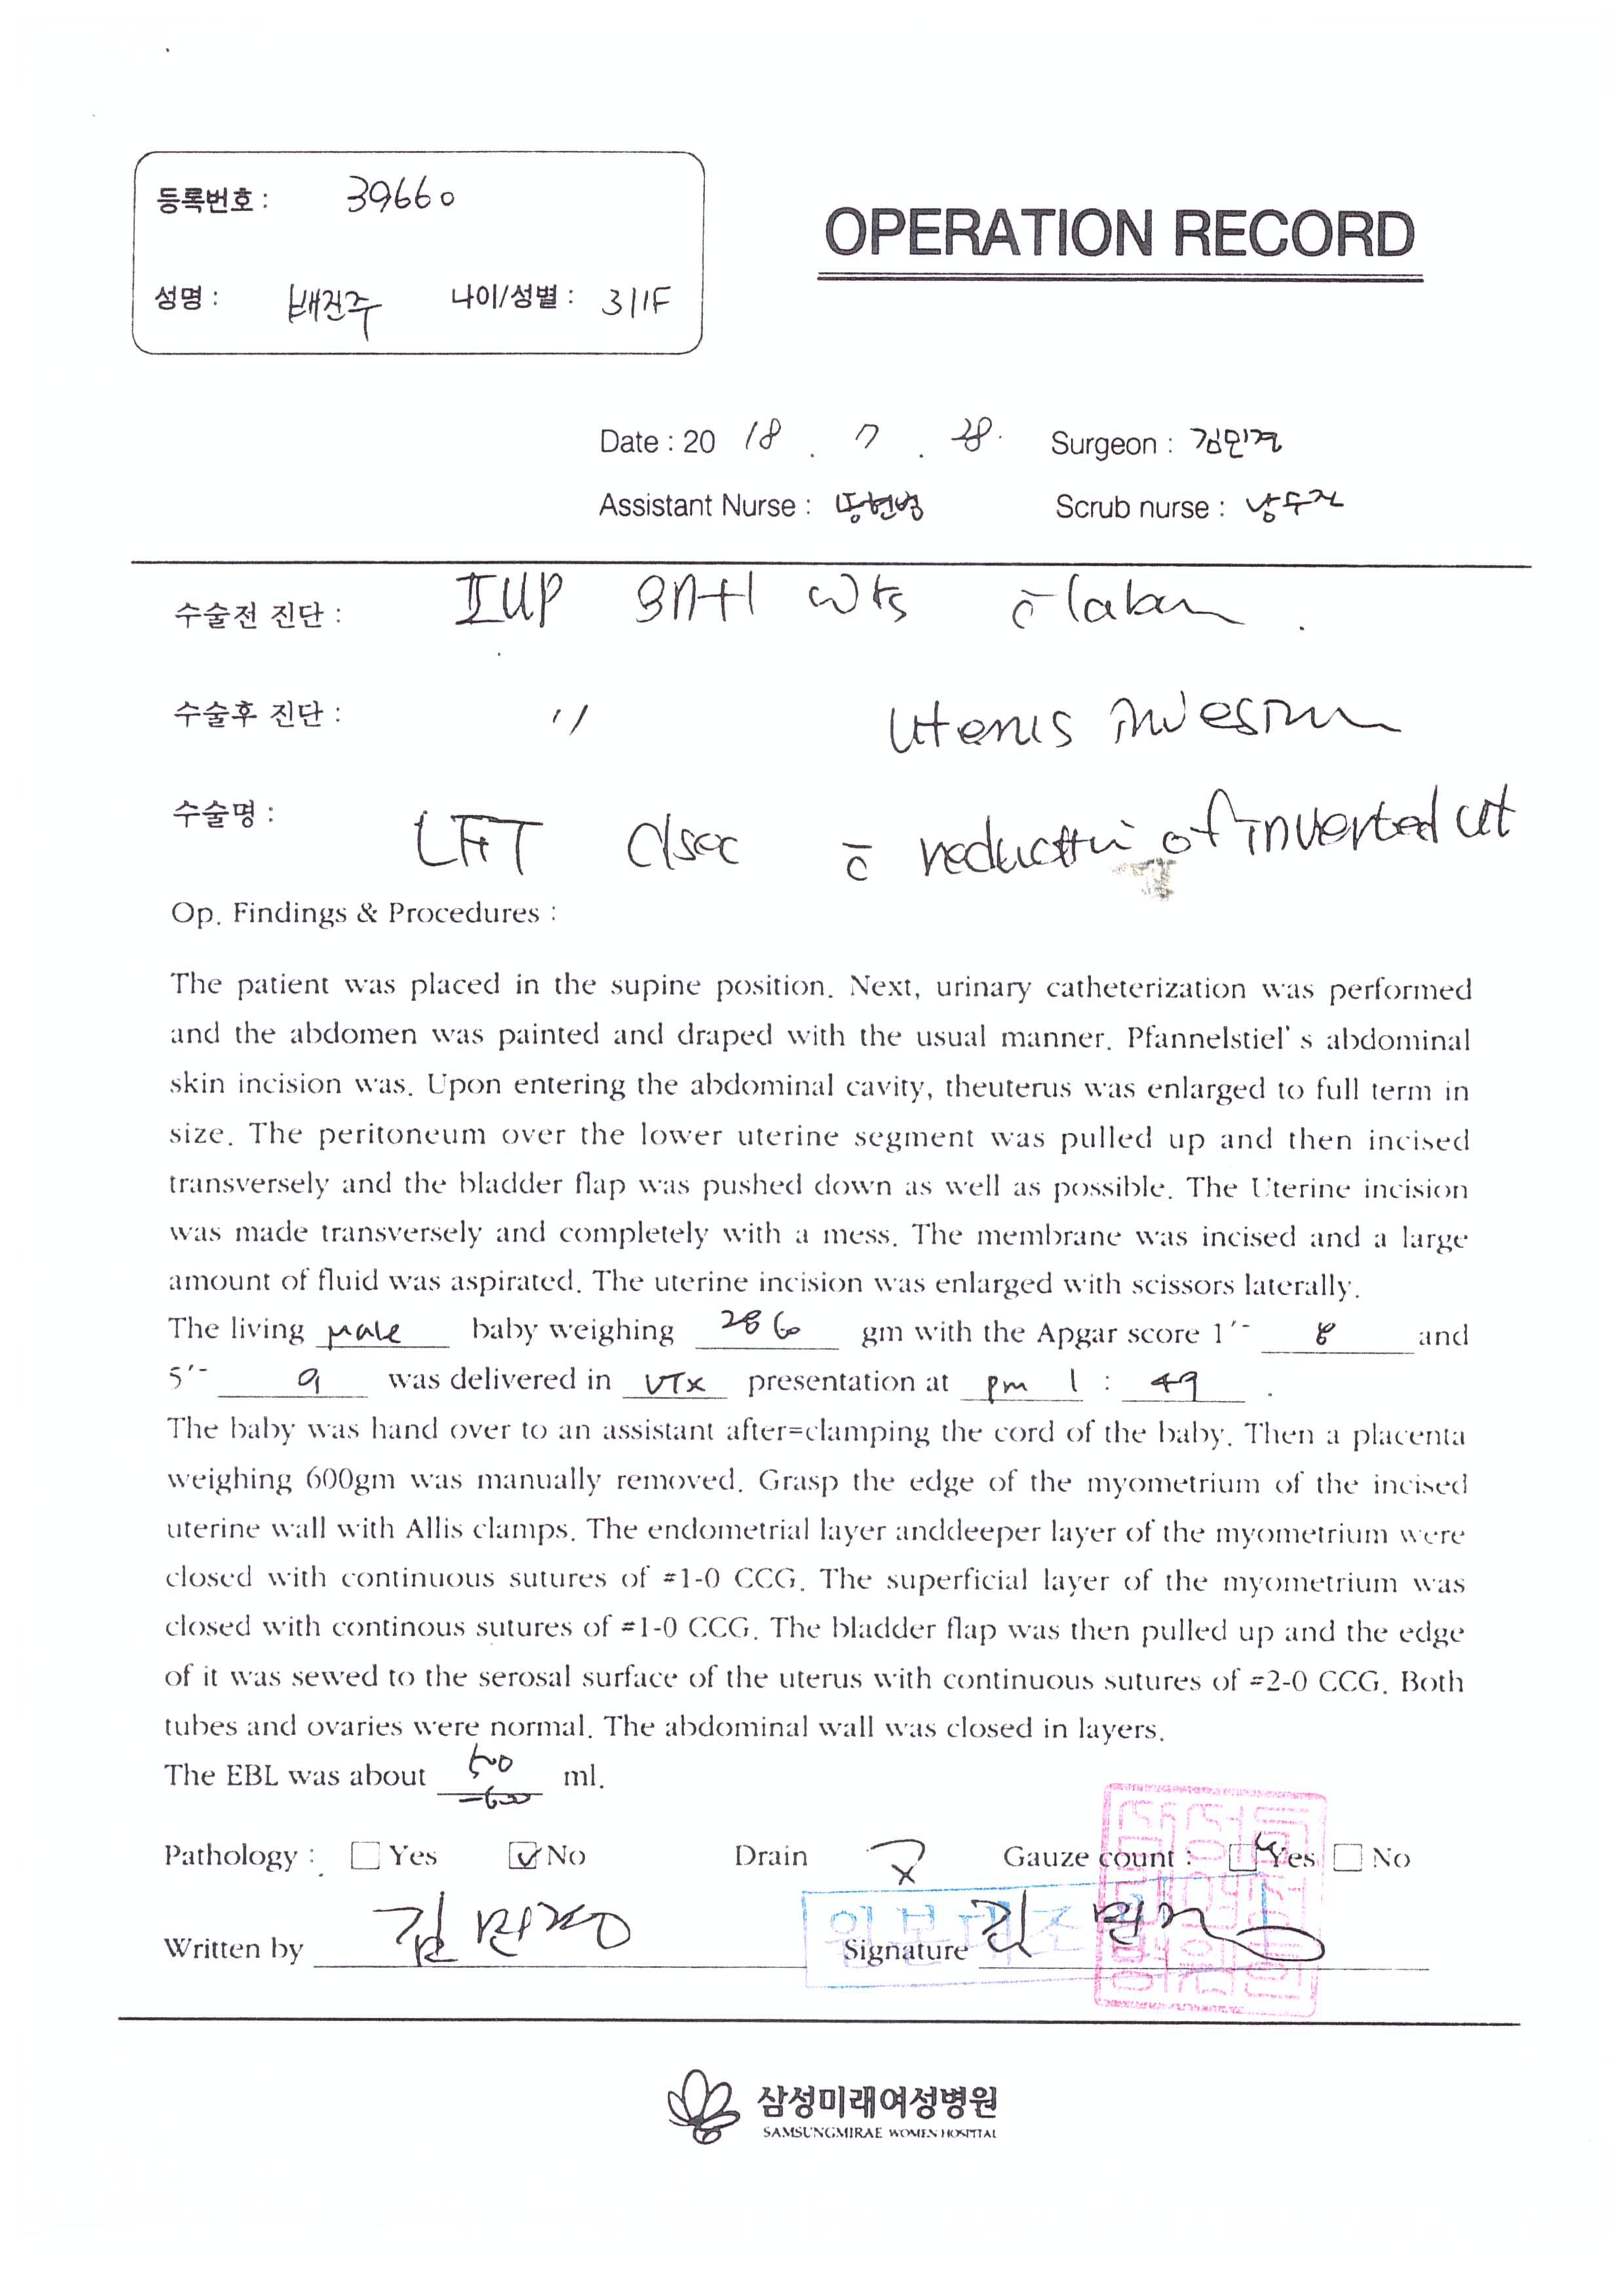 등록번호 : 39660
OPERATION RECORD
성명 : 배진주 나이/성별 : 31/F
Date : 20 18 . 7 . 28. Surgeon :
Assistant Nurse : Scrub nurse :
수술전 진단 : IUP 37+1 wks c̄ labor
수술후 진단 : " Uterus inversion
수술명 : C/sec c̄ reduction of inverted ut
Op. Findings & Procedures :
The patient was placed in the supine position. Next, urinary catheterization was performed
and the abdomen was painted and draped with the usual manner. Pfannelstiel's abdominal
skin incision was. Upon entering the abdominal cavity, theuterus was enlarged to full term in
size. The peritoneum over the lower uterine segment was pulled up and then incised
transversely and the bladder flap was pushed down as well as possible. The Uterine incision
was made transversely and completely with a mess. The membrane was incised and a large
amount of fluid was aspirated. The uterine incision was enlarged with scissors laterally.
The living male baby weighing 2860 gm with the Apgar score 1′- 8 and
5′- 9 was delivered in VTX presentation at pm 1 : 49 .
The baby was hand over to an assistant after=clamping the cord of the baby. Then a placenta
weighing 600gm was manually removed. Grasp the edge of the myometrium of the incised
uterine wall with Allis clamps. The endometrial layer anddeeper layer of the myometrium were
closed with continuous sutures of #1-0 CCG. The superficial layer of the myometrium was
closed with continous sutures of #1-0 CCG. The bladder flap was then pulled up and the edge
of it was sewed to the serosal surface of the uterus with continuous sutures of #2-0 CCG. Both
tubes and ovaries were normal. The abdominal wall was closed in layers.
The EBL was about ml.
Pathology : Yes No Drain Gauze count : Yes No
원본대조
Written by Signature
삼성미래여성병원
SAMSUNGMIRAE WOMEN HOSPITAL